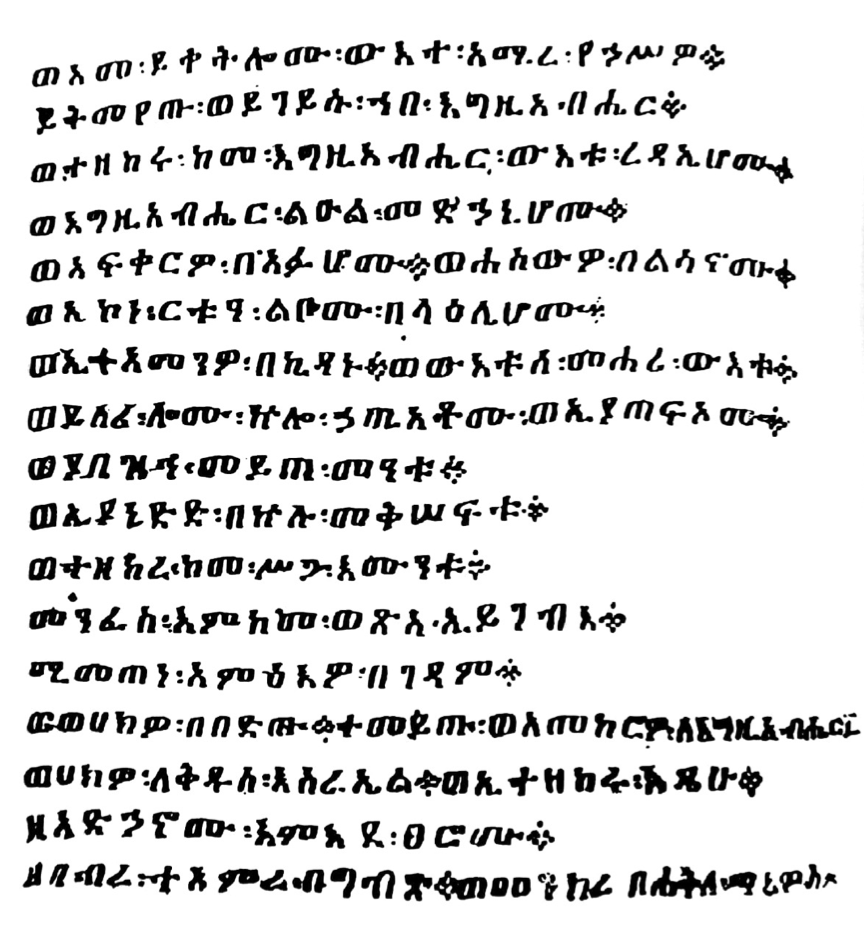 ወአመ፡ይቀትሎሙ፡ውእተ፡አሚረ፡የኃሥዎ።
ይትመየጡ፡ወይገይሱ፡ኀበ፡እግዚአብሔር።
ወተዘከሩ፡ከመ፡እግዚአብሔር፡ውእቱ፡ረዳኢሆሙ።
ወእግዚአብሔር፡ልዑል፡መድኃኒሆሙ።
ወአፍቀርዎ፡በአፉሆሙ።ወሐሰውዎ፡በልሳኖሙ።
ወኢኮነ፡ርቱዓ፡ልቦሙ፡በላዕሌሆሙ።
ወኢተአመንዎ፡በኪዳኑ።ወውእቱሰ፡መሐሪ፡ውእቱ።
ወይሰሪ፡ሎሙ፡ኵሎ፡ኃጢአቶሙ፡ወኢያጠፍኦሙ።
ወያበዝኅ፡መይጠ፡መዓቱ።
ወኢያነድድ፡በኵሉ፡መቅሠፍቱ።
ወተዘከረ፡ከመ፡ሥጋ፡እሙንቱ።
መንፈስ፡እምከመ፡ወጽአ፡ኢይገብእ።
ሚመጠነ፡አምዕዕዎ፡በገዳም።
ወወሀክዎ፡በበድው።ተመይጡ፡ወአመከርዎ፡ለእግዚአብሔር፤
ወሀክዎ፡ለቅዱሰ፡እስራኤል።ወኢተዘከሩ፡እዴሁ።
ዘአድኃኖሙ፡እምእደ፡ፀሮሙ።
ዘገብረ፡ተአምረ፡በግብጽ።ወመንክረ በሐቅለ ጣኔዎስ